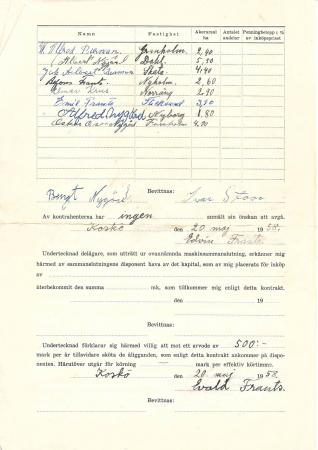 Namn Fastighet Åkerareal ha Antalet andelar Penningbelopp i % av inköpspriset
Grönholm 2,40
Dahl 5,50
Skata 4,40
Nyholm 2,60
Norräng 2,90
3,90
Alfred Nygård Nyborg 1,80
Bengt Nygård Bevittnas: Ivar
Av kontrahenterna har ingen anmält sin önskan att avgå.
Koskö den 20 maj 1958.
Edvin Frants
Undertecknad delägare, som utträtt ur ovannämnda maskinsammanslutning, erkänner mig
härmed av sammanslutningens disponent hava av det kapital, som av mig placerats för inköp
av
återbekommit den summa mk, som tillkommer mig enligt detta kontrakt.
den 19
Bevittnas:
Undertecknad förklarar sig härmed villig att mot ett arvode av 500:-
mark per år tillsvidare sköta de åligganden, som enligt detta kontrakt ankommer på dispo-
nenten. Härutöver utgår för körning — mark per effektiv körtimme.
Koskö den 20 maj 1958.
Evald Frants.
Bevittnas: